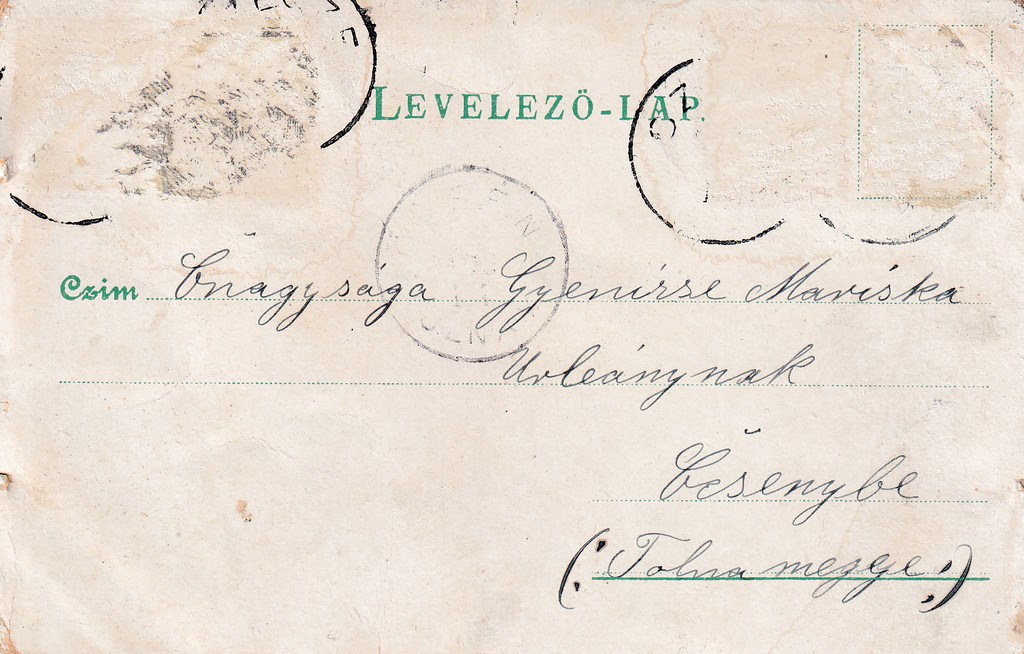 LEVELEZŐ-LAP.
Czim Őnagysága Gyenizse Mariska
Urleánynak
Őcsénybe
(: Tolna megye :)